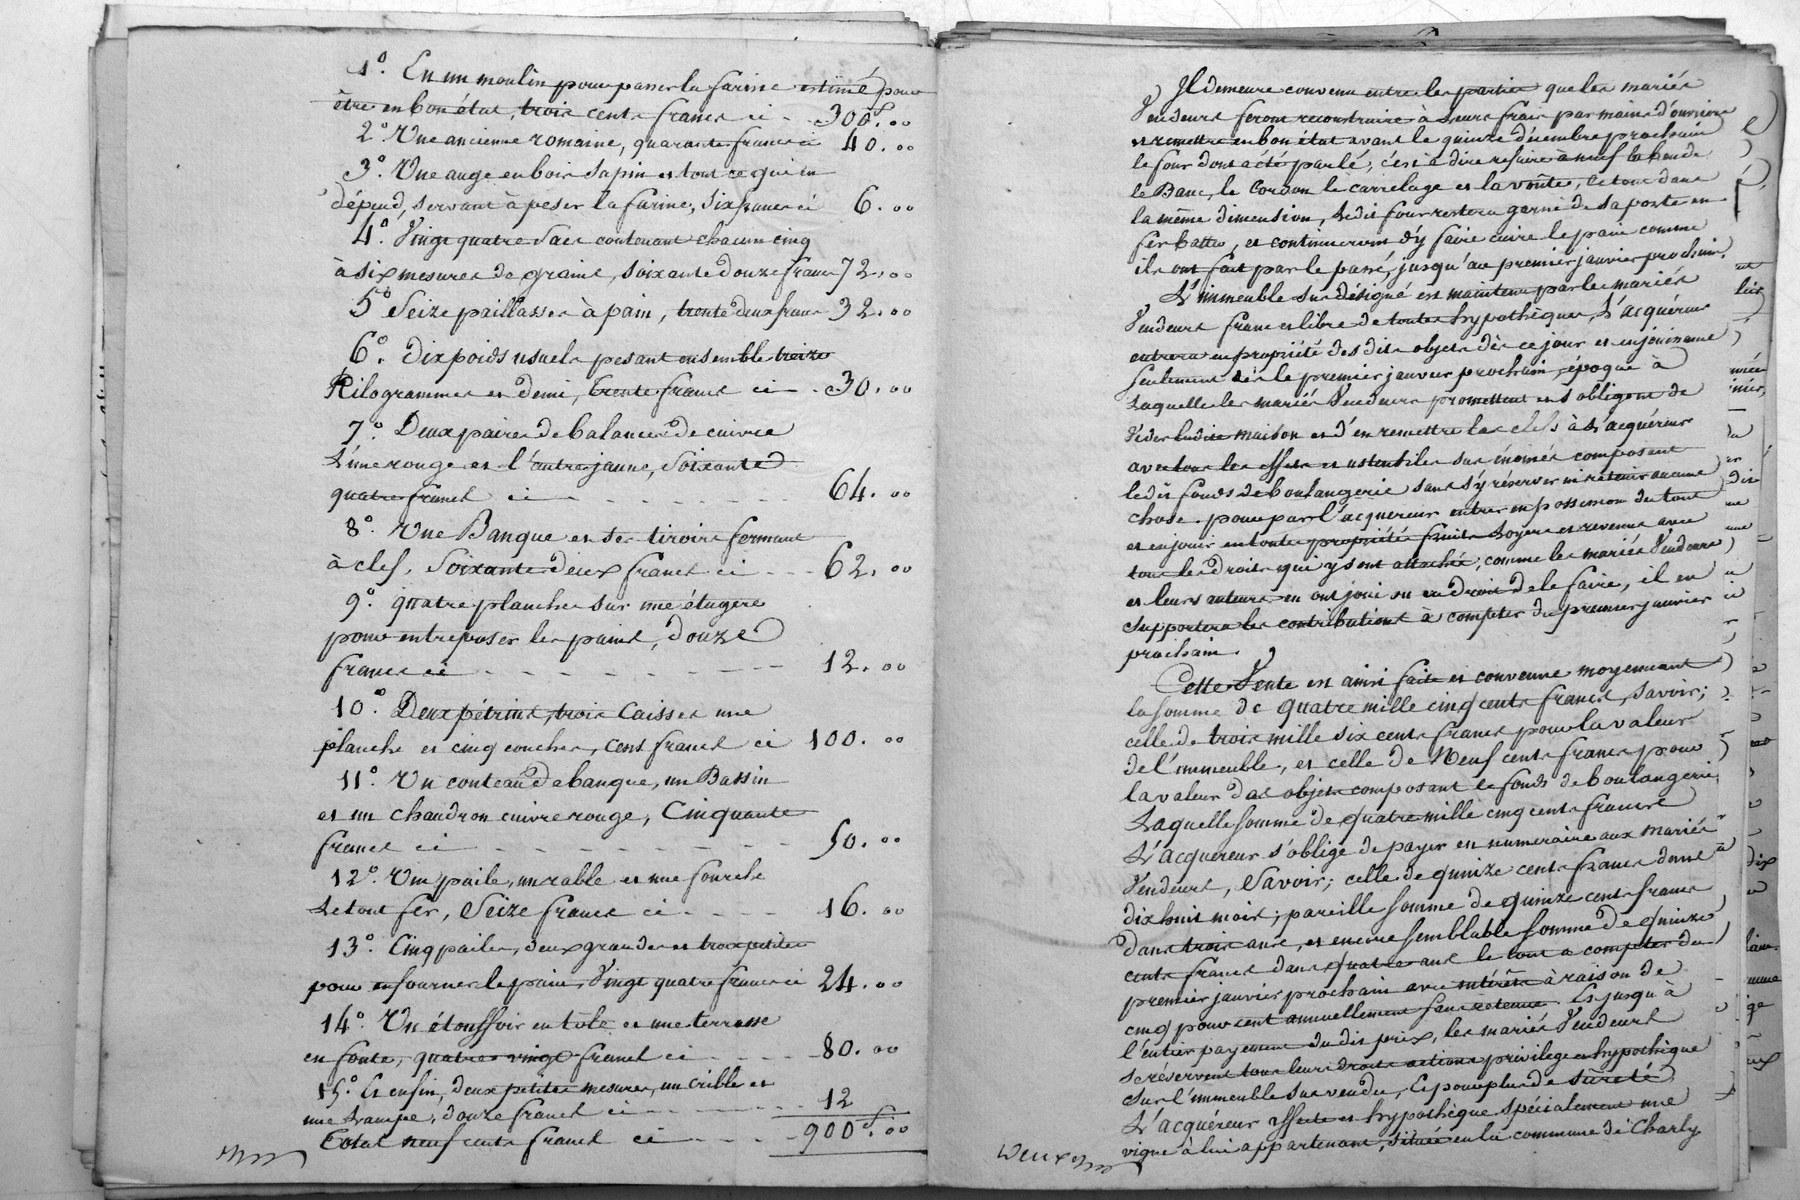 1º. En un moulin pour passer la farine estimé pour
être en bon état, trois cents francs ci - - 300f.00
2º. Une ancienne romaine, quarante francs ci 40.00
3º. Une auge en bois sapin et tout ce qui en
dépend, servant à peser la farine, six francs ci 6.00
4º. Vingt quatre sacs contenant chacun cinq
à six mesures de graine, soixante douze francs 72.00
5º Seize paillasses à pain, trente deux francs 32.00
6º. dix poids usuels pesant ensemble treize
Kilogrammes et demi, trente francs ci - 30.00
7º. Deux paires de balances de cuivre
L'une rouge et l'autre jaune, soixante
quatre francs ci - - - - - - 64.00
8º. Une Banque et ses tiroirs fermant
à clef, Soixante deux francs ci - - - 62.00
9º. quatre planches sur une étagère
pour entreposer les pains, douze
francs ci - - - - - - - - 12.00
10º. Deux pétrins, trois caisses une
planche et cinq couches, cent francs ci 100.00
11º. Un couteau de banque, un Bassin
et un chaudron cuivre rouge, Cinquante
francs ci - - - - - - - - 50.00
12º. Une paile, un rable et une fourche
Le tout fer, Seize francs ci - - - - 16.00
13º. Cinq pailes, deux grandes et trois petites
pour enfourner le pain, Vingt quatre francs ci 24.00
14º. Un étouffoir en tôle et une terrasse
en fonte, quatre vingt francs ci - - - - 80.00
15º. Et enfin, deux petites mesures, un crible et
une Lampe, douze francs ci - - - - - 12
Total neuf cents francs ci - - - - 900f.00
Il demeure convenu entre les parties que les mariés
Vendeurs feront reconstruire à leurs frais par mains d'ouvriers
et remettre en bon état avant le quinze décembre prochain
le four dont a été parlé, c'est à dire refaire à neuf le
le Banc, le Cordon le carrelage et la voûte, le tout dans
la même dimension, Ledit four restera garni de sa porte en
fer battu, et continueront d'y faire cuire le pain comme
ils ont fait par le passé, jusqu'au premier janvier prochain.
L'immeuble sus désigné est maintenu par les mariés
Vendeurs franc et libre de toutes hypothèques, L'acquéreur
entrera en propriété des dits objets dès ce jour et en jouissance
seulement dès le premier janvier prochain, époque à
Laquelle les mariés Vendeurs promettent et s'obligent de
vider ladite maison et d'en remettre les clefs à L'acquéreur
avec tous les effets et ustensiles sus énoncés composant
ledit fonds de boulangerie sans s'y réserver ni retenir aucune
chose. pour par l'acquéreur entrer en possession du tout
et en jouir en toute propriété fruits Loyers et revenus avec
tous les droits qui y sont attachés; comme les mariés Vendeurs
et leurs auteurs en ont joui ou eu droit de le faire, il en
supportera les contributions à compter du premier janvier
prochain.
Cette Vente est ainsi faite et convenue moyennant
la somme de quatre mille cinq cents francs, Savoir;
celle de trois mille six cents francs pour la valeur
de l'immeuble, et celle de Neuf cents francs pour
la valeur des objets composant le fonds de boulangerie,
Laquelle somme de quatre mille cinq cents francs
L'acquéreur s'oblige de payer en numéraire aux mariés
Vendeurs, Savoir; celle de quinze cents francs dans
dix huit mois; pareille somme de quinze cents francs
dans trois ans, et encore semblable somme de quinze
cents francs dans quatre ans le tout à compter du
premier janvier prochain avec intérêts à raison de
cinq pour cent annuellement sans retenue. Et jusqu'à
l'entier payement du dit prix, les mariés Vendeurs
se réservent tous leurs droits actions privilège et hypothèque
sur l'immeuble sus vendu, Et pour plus de sûreté
L'acquéreur affecte et hypothèque spécialement une
vigne à lui appartenant, située en la commune de Charly